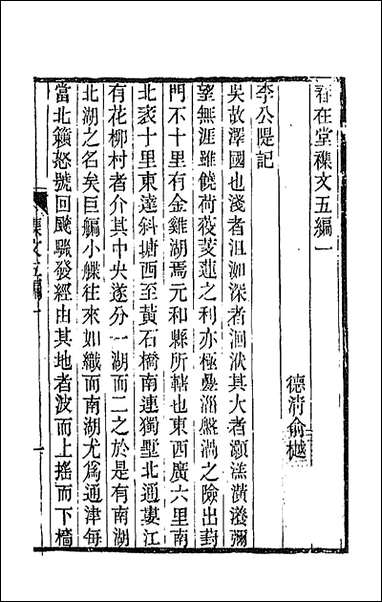 春在堂襍文五編一
德清俞樾
李公隄記
吳故澤國也淺者沮洳深者洄洑其大者灝溔潢瀁彌
望無涯雖饒荷芰菱蓮之利亦極㶑淵盤渦之險出葑
門不十里有金雞湖焉元和縣所轄也東西廣六里南
北袤十里東達斜塘西至黃石橋南連獨墅北通婁江
有花柳村者介其中央遂分一湖而二之於是有南湖
北湖之名矣巨艑小艓往來如織而南湖尤爲通津每
當北籟怒號回颷驟發經由其地者波而上搖而下檣
襍文五編一
一